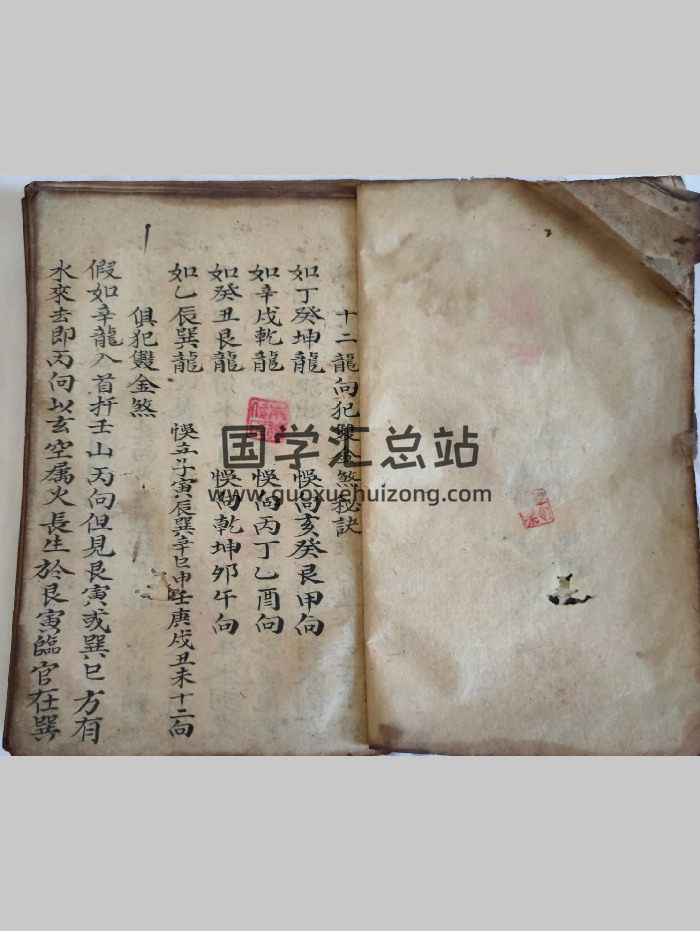 十二龍向犯雙金煞秘訣
如丁癸坤龍 悞向亥癸艮甲向
如辛戌乾龍 悞向丙丁乙酉向
如癸丑艮龍 悞向乾坤夘午向
如乙辰巽龍 悞立子寅辰巽辛巳申壬庚戌丑未十二向
俱犯雙金煞
假如辛龍入首扦壬山丙向但見艮寅或巽巳方有
水來去即丙向以玄空属火長生於艮寅臨官在巽
国学汇总站
www.guoxuehuizong.com